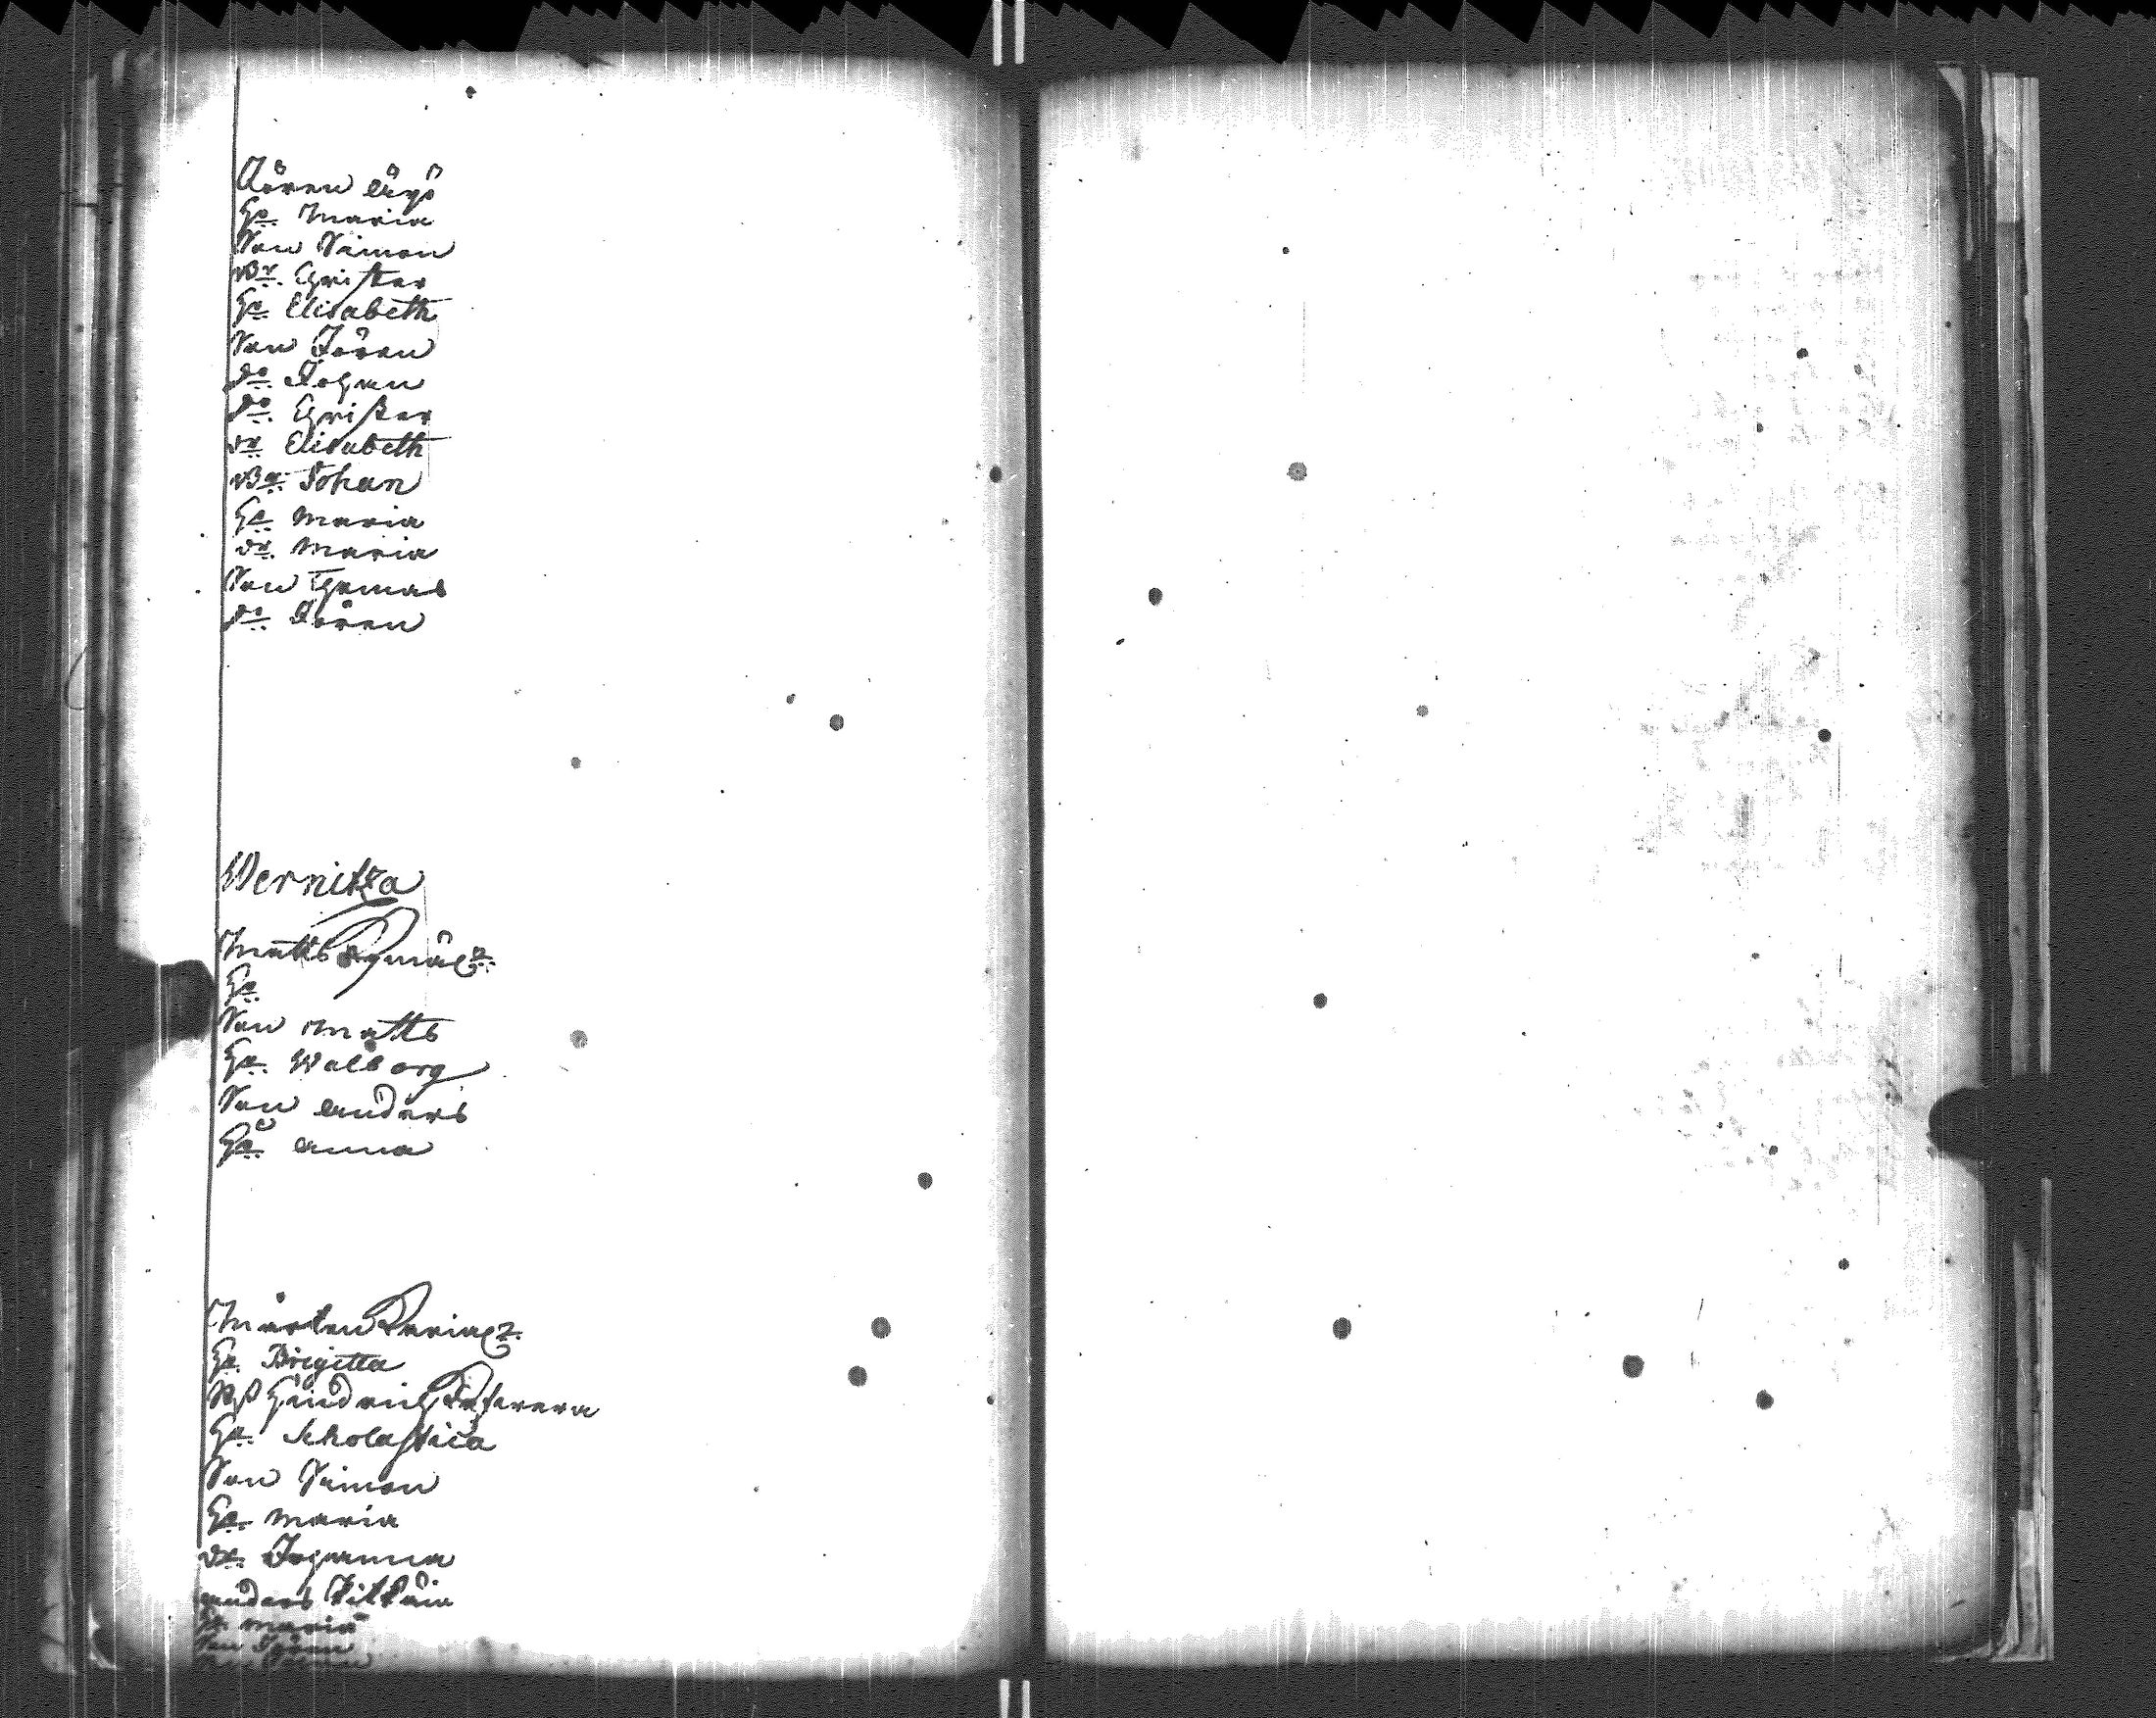 Jören Äyö
Ha. Maria
Son Simon
Br. Christer
Ha. Elisabeth
Son Jören
do. Johan
do. Christer
dr. Elisabeth
Br. Johan
Ha. Maria
dr. Maria
Son Thomas
do. Jören
Wernitza
Matts
Ha.
Son Matts
Ha. Walborg
Son Anders
Ha. Anna
Mårten
Ha. Brigitta
Hindrich
Ha. Scholastica
Son Simon
Ha. Maria
dr. Johanna
Anders Kilkäin
Ha. Maria
Son Jören